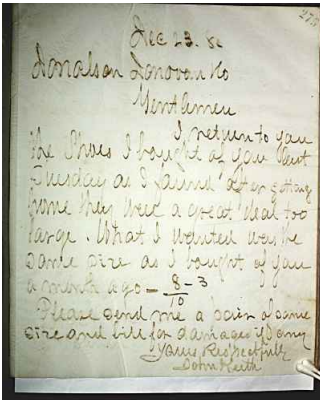 273
Dec 23. 82
Donalson Donovan & Co
Gentlemen
I return to you
the Shoes I bought of you last
Tuesday as I found after getting
home they were a great deal too
large. What I wanted was the
same size as I bought of you
a month ago - 8-3
10
Please send me a pair of same
size and bill for damages if any
Yours Respectfully
John Keith